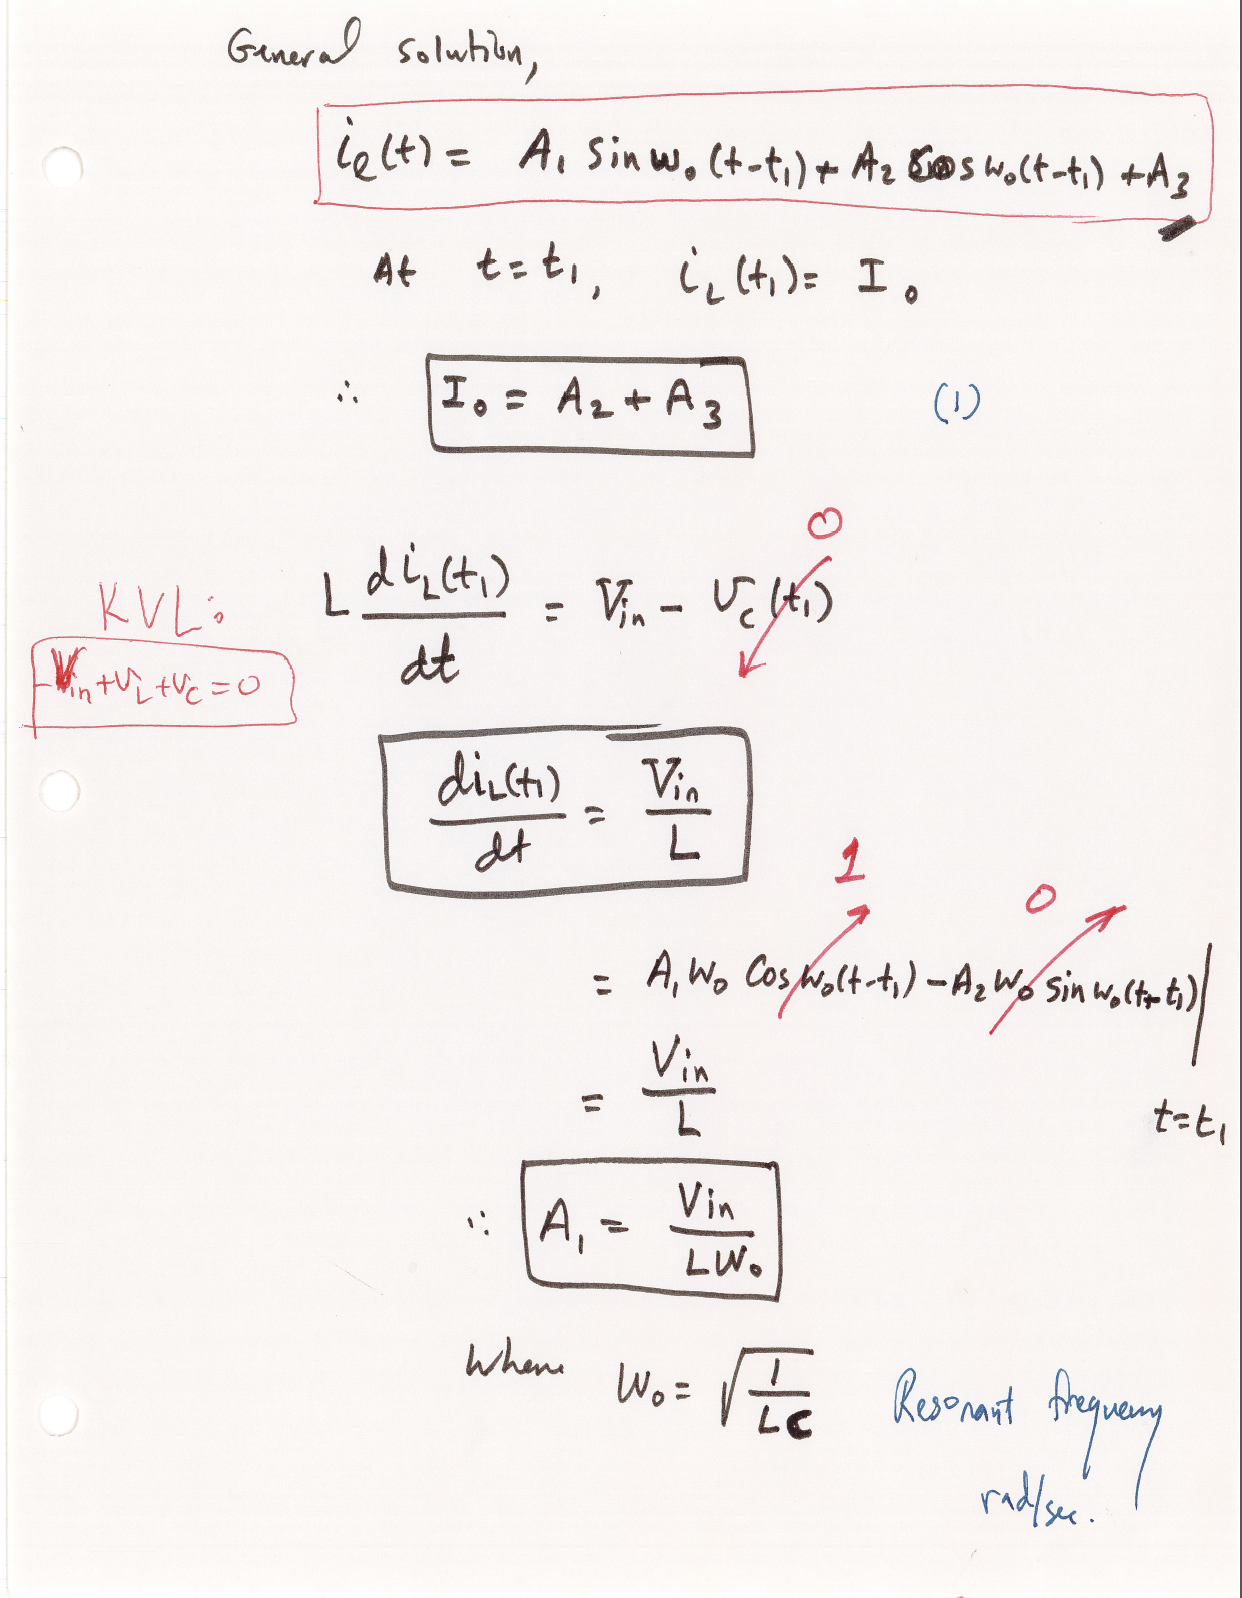 General solution,
i_L(t) = A_1 sin w_0 (t-t_1) + A_2 cos w_0(t-t_1) + A_3
At t = t_1, i_L(t_1) = I_0
∴ I_0 = A_2 + A_3 (1)
0
L di_L(t_1)/dt = V_in - v_c(t_1)
KVL:
-V_in + v_L + v_c = 0
di_L(t_1)/dt = V_in/L
1 0
= A_1 w_0 cos w_0(t-t_1) - A_2 w_0 sin w_0(t-t_1) |
= V_in/L
t=t_1
∴ A_1 = V_in/(L w_0)
Where w_0 = √(1/LC) Resonant frequency
rad/sec.